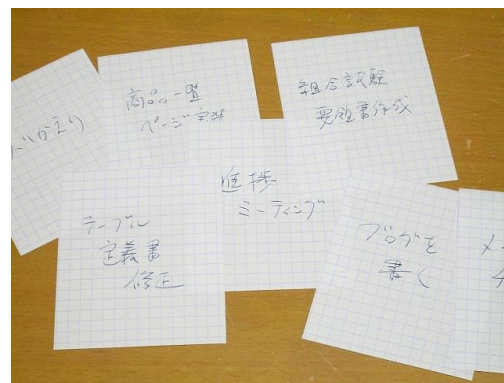 商品一覧
ページ実装
組合試験
要領書作成
進捗
ミーティング
テーブル
定義書
修正
ブログを
書く
メ